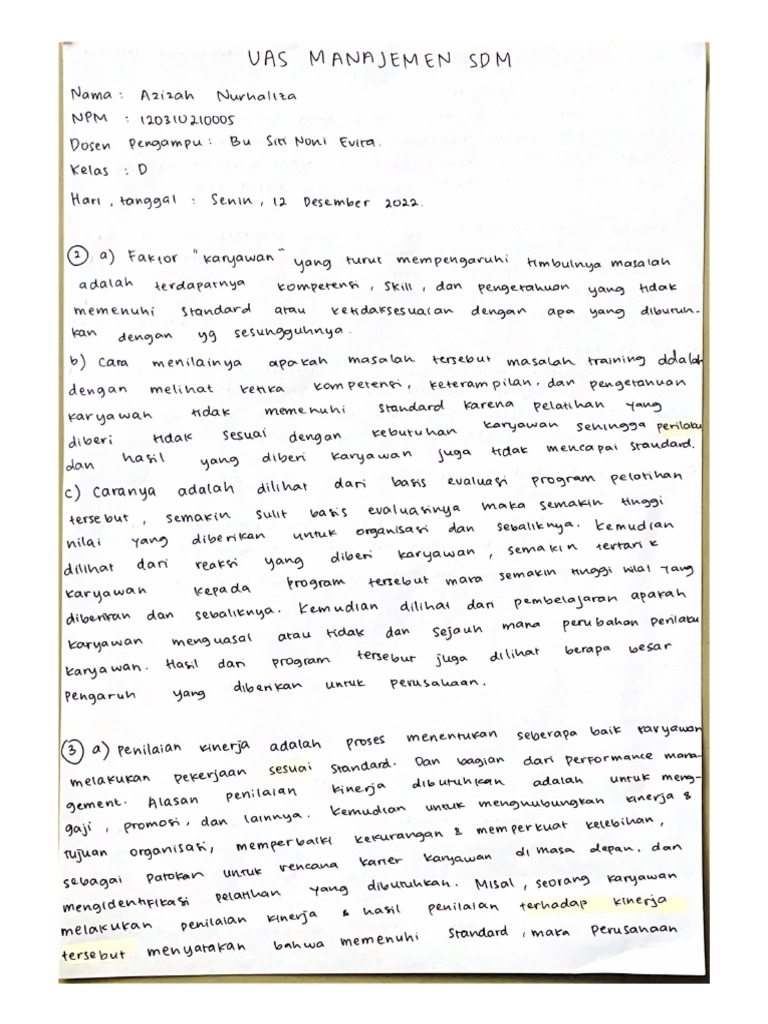 UAS MANAJEMEN SDM
Nama : Azizah Nurhaliza
NPM : 120310210005
Dosen Pengampu : Bu Siti Noni Evita.
Kelas : D
Hari, tanggal : Senin, 12 Desember 2022.
2 a) Faktor "karyawan" yang turut mempengaruhi timbulnya masalah
adalah terdapatnya kompetensi, skill, dan pengetahuan yang tidak
memenuhi standard atau ketidaksesuaian dengan apa yang dibutuh-
kan dengan yg sesungguhnya.
b) Cara menilainya apakah masalah tersebut masalah training adalah
dengan melihat ketika kompetensi, keterampilan, dan pengetahuan
karyawan tidak memenuhi standard karena pelatihan yang
diberi tidak sesuai dengan kebutuhan karyawan sehingga perilaku
dan hasil yang diberi karyawan juga tidak mencapai standard.
c) Caranya adalah dilihat dari basis evaluasi program pelatihan
tersebut, semakin sulit basis evaluasinya maka semakin tinggi
nilai yang diberikan untuk organisasi dan sebaliknya. Kemudian
dilihat dari reaksi yang diberi karyawan, semakin tertarik
karyawan kepada program tersebut maka semakin tinggi nilai yang
diberikan dan sebaliknya. Kemudian dilihat dari pembelajaran apakah
karyawan menguasai atau tidak dan sejauh mana perubahan perilaku
karyawan. Hasil dari program tersebut juga dilihat berapa besar
pengaruh yang diberikan untuk perusahaan.
3 a) Penilaian kinerja adalah proses menentukan seberapa baik karyawan
melakukan pekerjaan sesuai standard. Dan bagian dari performance mana-
gement. Alasan penilaian kinerja dibutuhkan adalah untuk meng-
gaji, promosi, dan lainnya. Kemudian untuk menghubungkan kinerja &
tujuan organisasi, memperbaiki kekurangan & memperkuat kelebihan,
sebagai patokan untuk rencana karier karyawan di masa depan, dan
mengidentifikasi pelatihan yang dibutuhkan. Misal, seorang karyawan
melakukan penilaian kinerja & hasil penilaian terhadap kinerja
tersebut menyatakan bahwa memenuhi standard, maka perusahaan